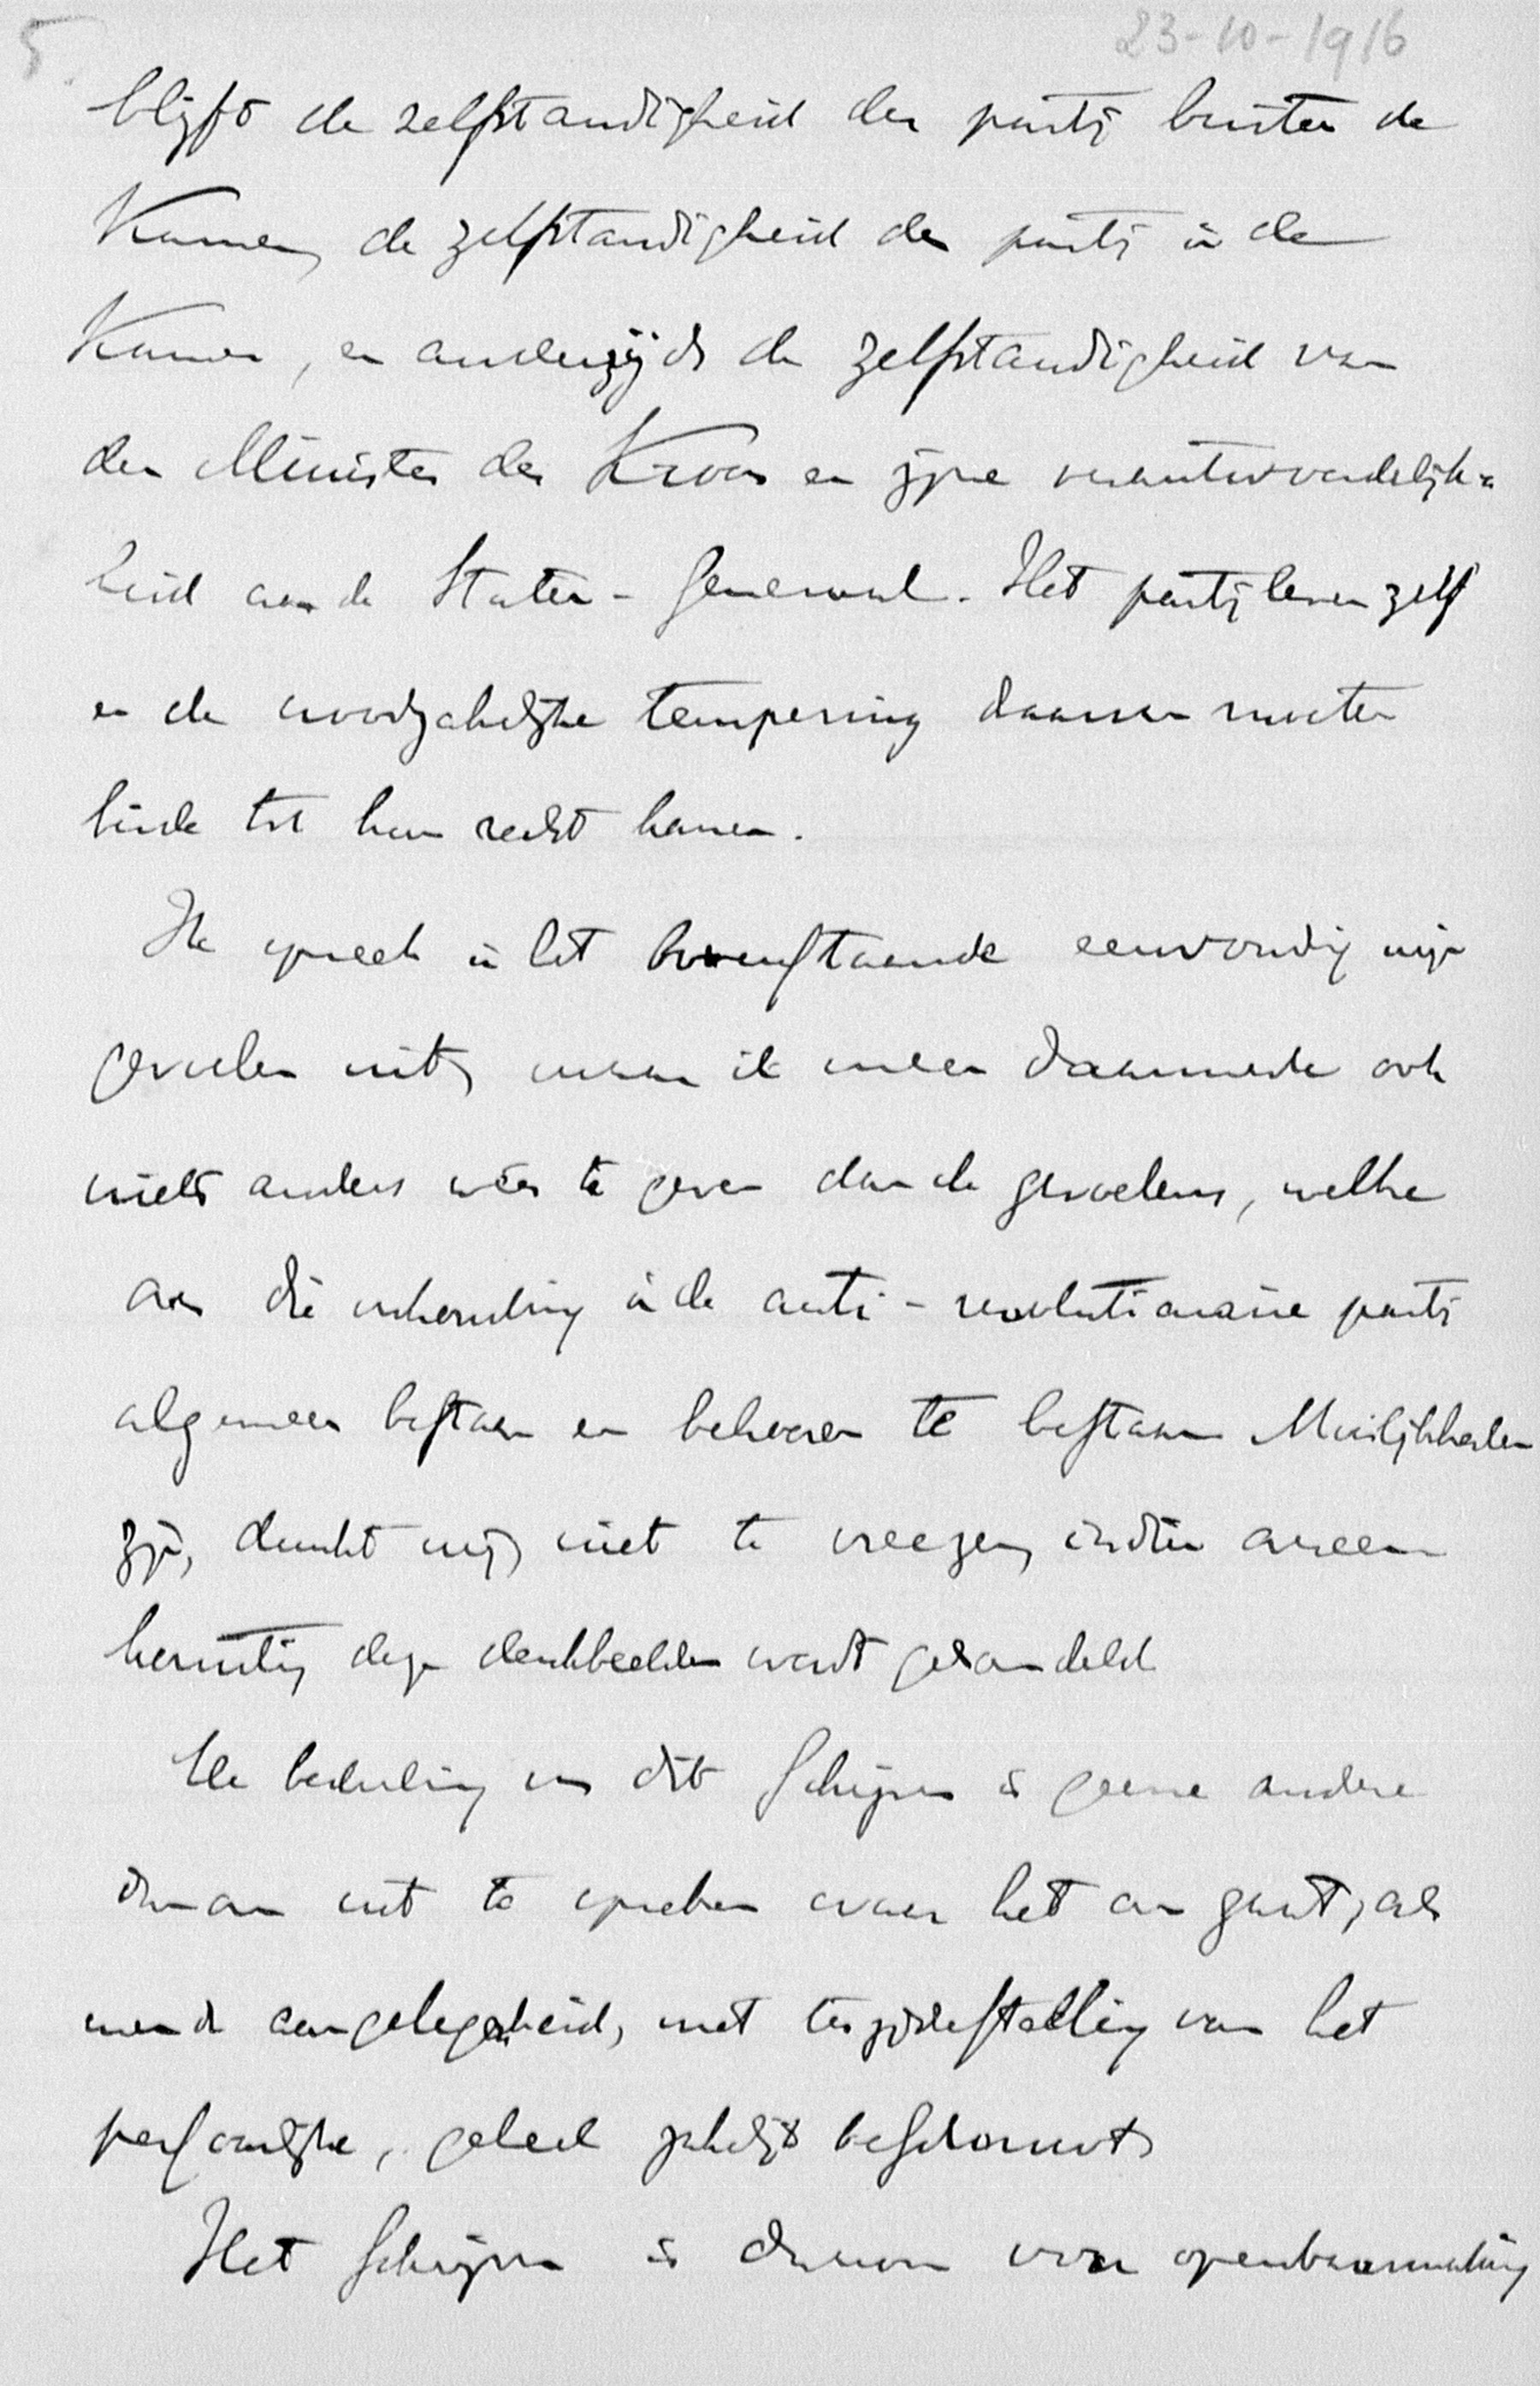 5.
23-10-1916
blijft de zelfstandigheid der partij buiten de
Kamer, de zelfstandigheid der partij in de
Kamer, en anderzijds de zelfstandigheid van
den Minister der Kroon en zijne verantwoordelijk-
heid aan de Staten-Generaal. Het partijleven zelf
en de noodzakelijke tempering daarvan moeten
beide tot hun recht komen.
Ik spreek in het bovenstaande eenvoudig mijn
gevoelen uit, maar ik meen daarmede ook
niets anders weer te geven dan de gevoelens, welke
over die verhouding in de anti-revolutionaire partij
algemeen bestaan en behooren te bestaan. Moeilijkheden
zijn, dunkt mij, niet te vreezen, indien overeen-
komstig deze denkbeelden wordt gehandeld
De bedoeling van dit schrijven is geene andere
dan om uit te spreken waar het om gaat, als
mede aangelegenheid, met terzijdestelling van het
persoonlijke, geheel zakelijk beschouwt.
Het schrijven is daarom voor openbaarmaking